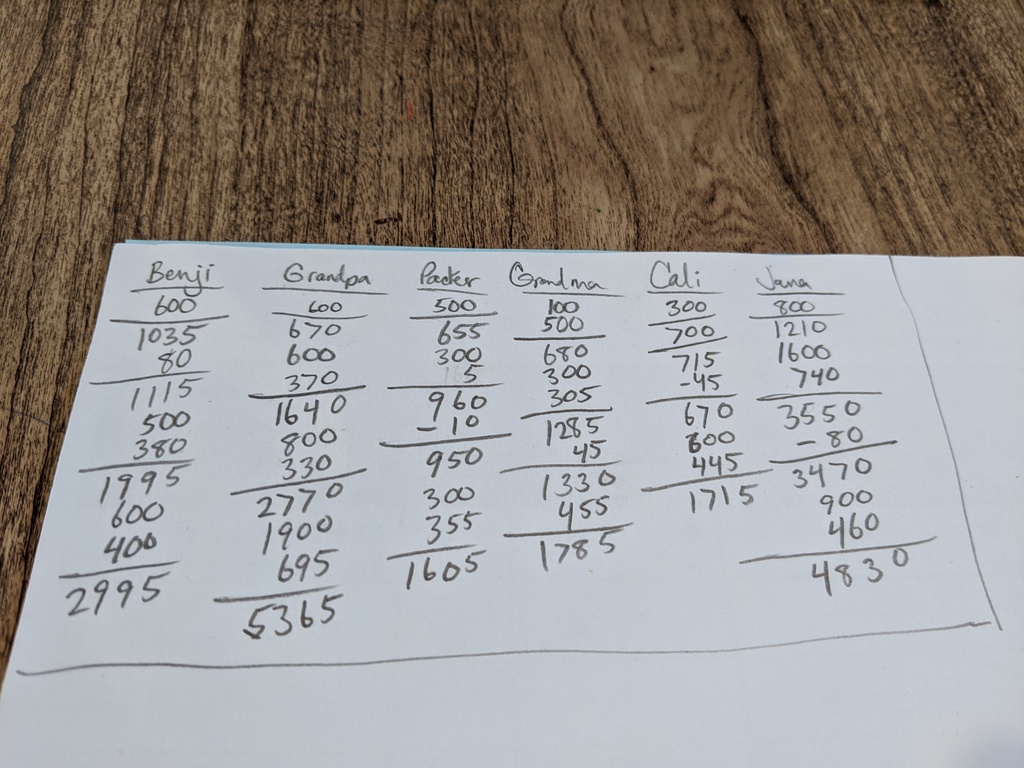 Benji Grandpa Packer Grandma Cali Jana
600 600 500 100 300 800
1035 670 655 500 700 1210
80 600 300 680 715 1600
1115 370 5 300 -45 740
500 1640 960 305 670 3550
380 800 -10 1285 600 -80
1995 330 950 45 445 3470
600 2770 300 1330 1715 900
400 1900 355 455 460
2995 695 1605 1785 4830
5365